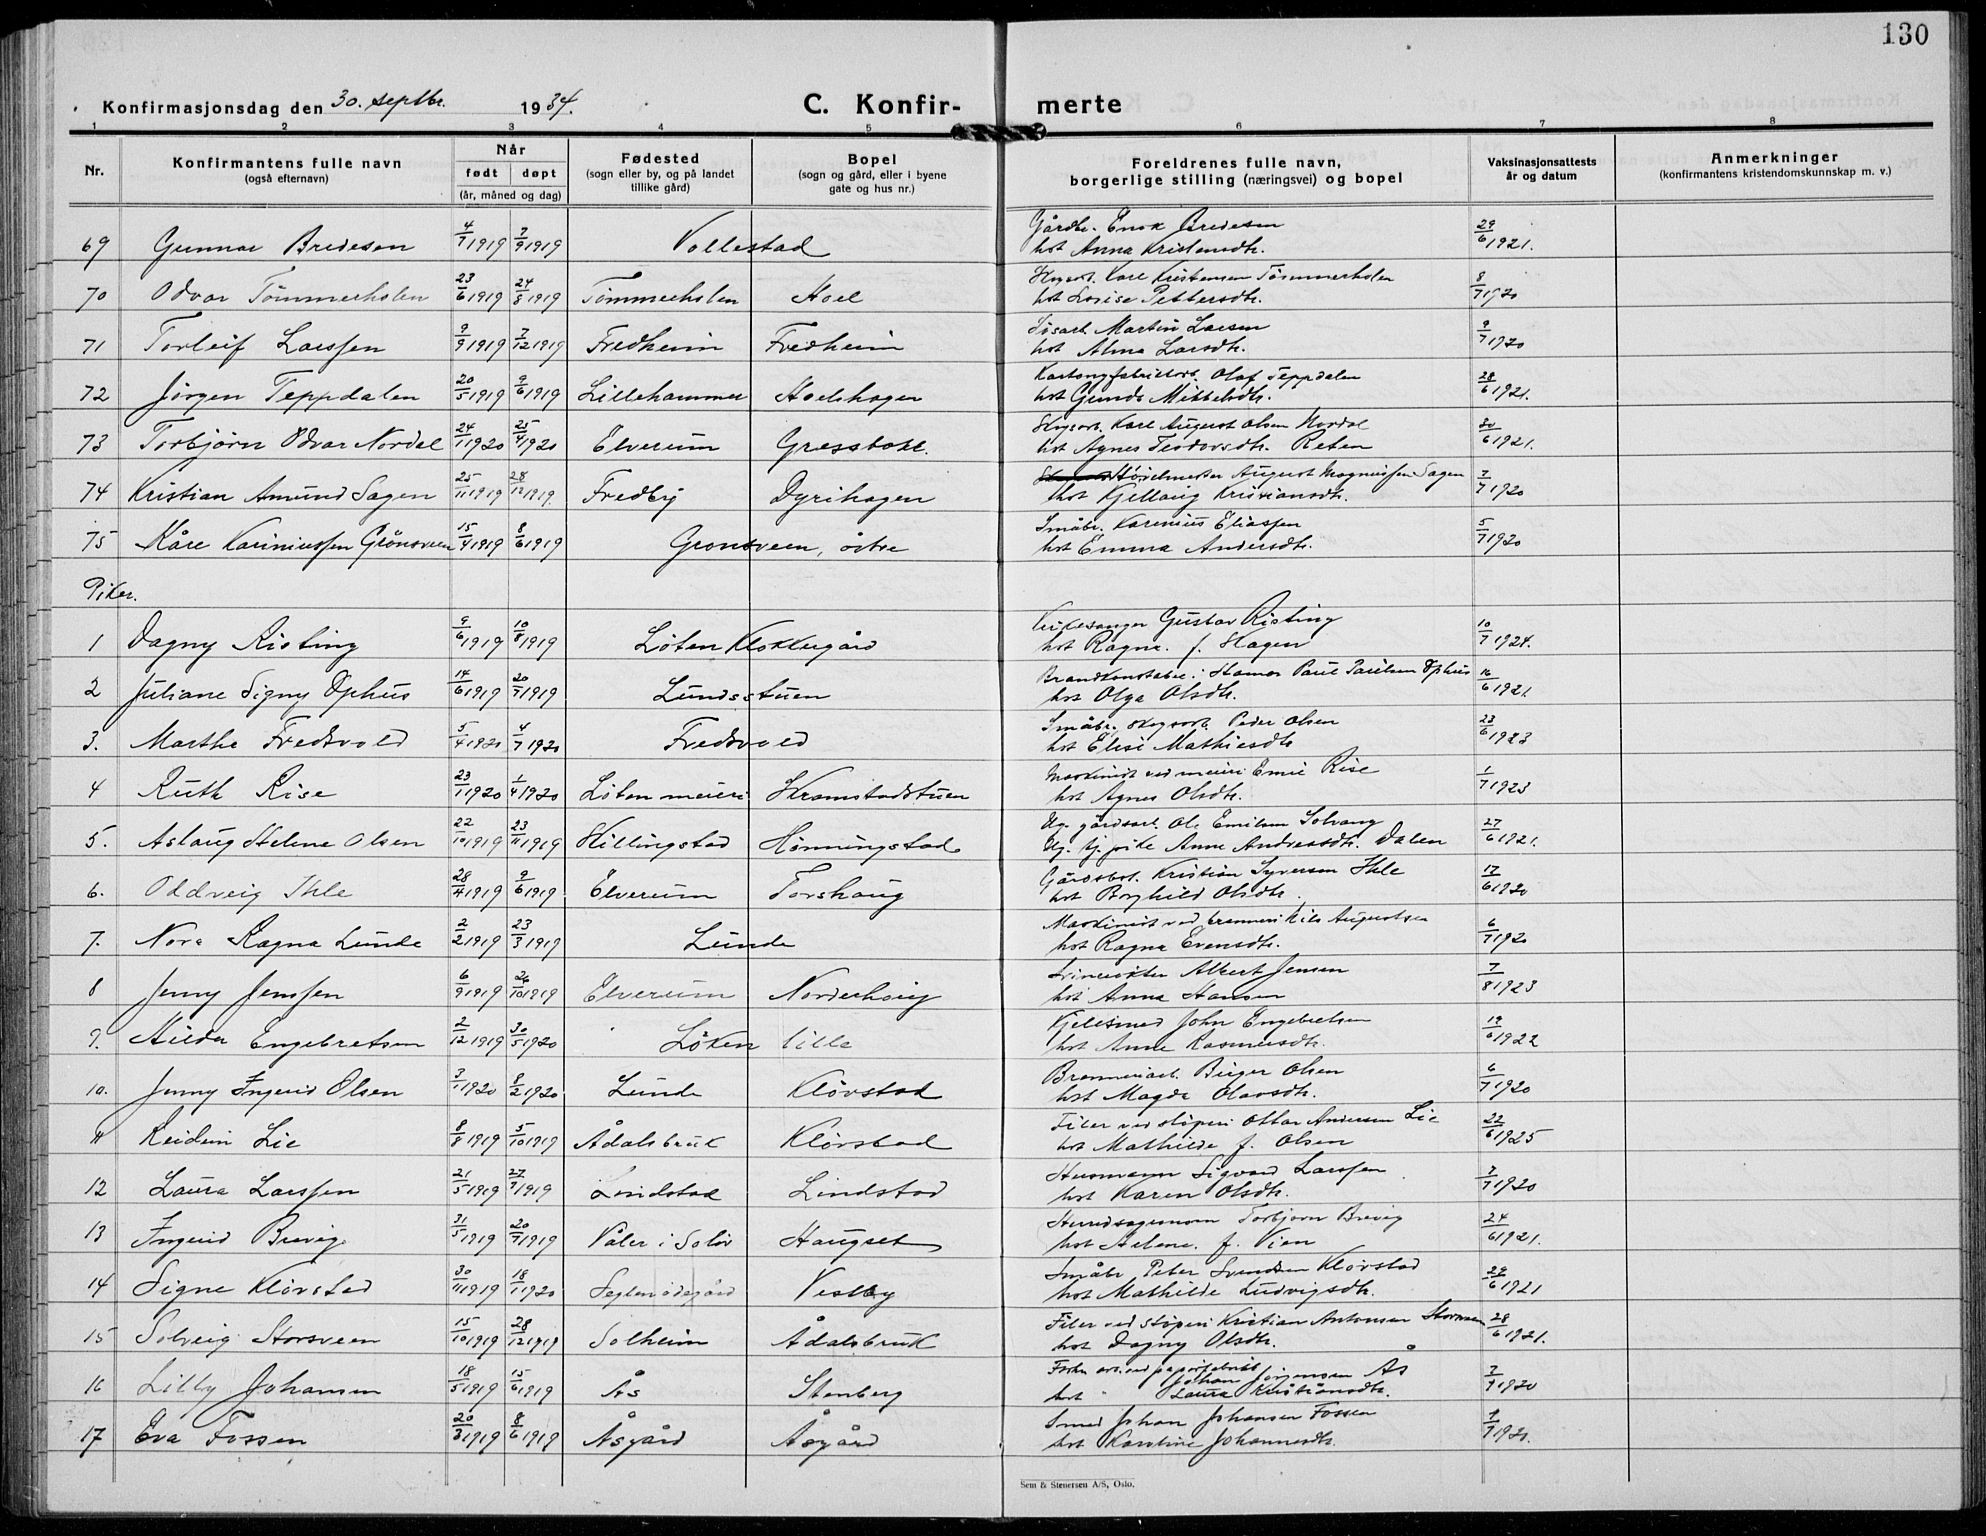 130
Konfirmasjonsdag den 30. septbr. 1934.
C. Konfir-
merte
1 2 3 4 5 6 7 8
Nr.
Konfirmantens fulle navn
(også efternavn)
Når
født døpt
(år, måned og dag)
Fødested
(sogn eller by, og på landet
tillike gård)
Bopel
(sogn og gård, eller i byene
gate og hus nr.)
Foreldrenes fulle navn,
borgerlige stilling (næringsvei) og bopel
Vaksinasjonsattests
år og datum
Anmerkninger
(konfirmantens kristendomskunnskap m. v.)
Gårdbr. Enok Bredesen
69 Gunnar Bredesen 4/7 1919 7/9 1919 Vollestad hst Anna Kristensdtr. 29/6 1921.
Skogsarb. Karl Kristensen Tømmerholen
70 Odvar Tømmerholen 23/6 1919 24/8 1919 Tømmerholen Hoel hst Lovise Pettersdtr. 8/7 1920
Martin Larsen
71 Torleif Larssen 9/9 1919 7/12 1919 Fredheim Fredheim hst Alma Larsdtr. 9/7 1920
Kartongfabrikarb. Olaf Teppdalen
72 Jørgen Teppdalen 20/5 1919 9/6 1919 Lillehammer Hoelshagen hst Gunda Mikkelsdtr. 28/6 1921.
Skogsarb. Karl August Olsen Nordal
73 Torbjørn Odvar Nordal 24/1 1920 25/4 1920 Elverum Gresstokk. hst Agnes Teodorsdtr. Reten 30/6 1921.
August Magnussen Sagen
74 Kristian Amund Sagen 25/11 1919 28/12 1919. Fredby Dyrihagen hst Kjellaug Kristiansdtr. 7/7 1920
Småbr. Karinius Eliassen
75 Kåre Kariniussen Grønsveen 15/4 1919 8/6 1919 Gronsveen, østre hst Emma Andersdtr. 5/7 1920
Piker.
Kirkesanger Gustav Risting
1 Dagny Risting 9/6 1919 10/8 1919 Løten Klokkergård hst Ragna. f. Hagen 10/7 1924.
Brandkonstabel i Hamar Paul Paulsen Ophus
2 Juliane Signy Ophus 14/6 1919 20/7 1919 Lundsstuen hst Olga Olsdtr. 16/6 1921.
Småbr, skogsarb. Peder Olsen
3. Marthe Fredsvold 5/4 1920 4/7 1920 Fredsvold hst Elise Mathiesdtr 23/6 1923
Maskinist ved meieri Emil Rise
4 Ruth Rise 23/1 1920 1/4 1920 Løten meieri Kramstadstuen hst Agnes Olsdtr. 1/7 1923
Ug. gårdsarb. Ole Emilsen Solvang
5. Aslaug Helene Olsen 22/10 1919 23/11 1919 Hillingstad Hønningstad Ug. tj. pike Anne Andreasdtr. Dalen 27/6 1921.
Gårdsbest. Kristian Syversen Ihle
6. Oddveig Ihle 28/4 1919 9/6 1919. Elverum Torshaug hst Borghild Olsdtr. 17/6 1920
Maskinist ved brenneri Nils Augustsen
7. Nora Ragna Lunde 2/2 1919 23/3 1919 Lunde hst Ragna Evensdtr. 6/7 1920
Albert Jensen
8 Jenny Jenssen 6/9 1919 26/10 1919 Elverum Norderhaug hst Anna Hansen 7/8 1923
Kjelesmed John Engebretsen
9. Hilda Engebretsen 2/12 1919 30/5 1920 Løken lille hst Anne Rasmusdtr. 19/6 1922
Brenneriarb. Birger Olsen
10. Jenny Ingerid Olsen 3/1 1920 8/2 1920 Lunde Kløvstad hst Magda Olavsdtr. 6/7 1920
Filer ved støperi Ottar Andersen Lie
11 Reidun Lie 8/8 1919 5/10 1919 Ådalsbruk Kløvstad hst Mathilde f. Olsen 22/6 1925
Husmann Sigvard Larssen
12 Laura Larssen 21/5 1919 27/7 1919 Lindstad Lindstad hst Karen Olsdtr. 7/7 1920
Herredsagronom Torbjørn Brevig
13 Ingerid Brevig. 31/5 1919 20/9 1919 Våler i Solør Haugset hst Helene. f. Vien 24/6 1921.
Småbr Peter Svendsen Kløvstad
14 Signe Kløvstad 30/11 1919 18/1 1920 Seglemødegård Vestby hst Mathilde Ludvigsdtr. 29/6 1921
Filer ved støperi Kristian Antonsen Storsveen
15 Solveig Storsveen 15/10 1919 28/12 1919 Solheim Ådalsbruk hst Dagny Olsdtr. 28/6 1921.
Johan Jørgensen Ås
16 Lilly Johansen 18/5 1919 15/6 1919 Ås Stenberg hst Laura Kristiansdtr. 7/7 1920
Smed Johan Johansen Fossen
17 Eva Fossen 20/3 1919 8/6 1919 Åsgård Åsgård hst Karoline Johannesdtr. 9/7 1920.
Sem & Stenersen A/S, Oslo.